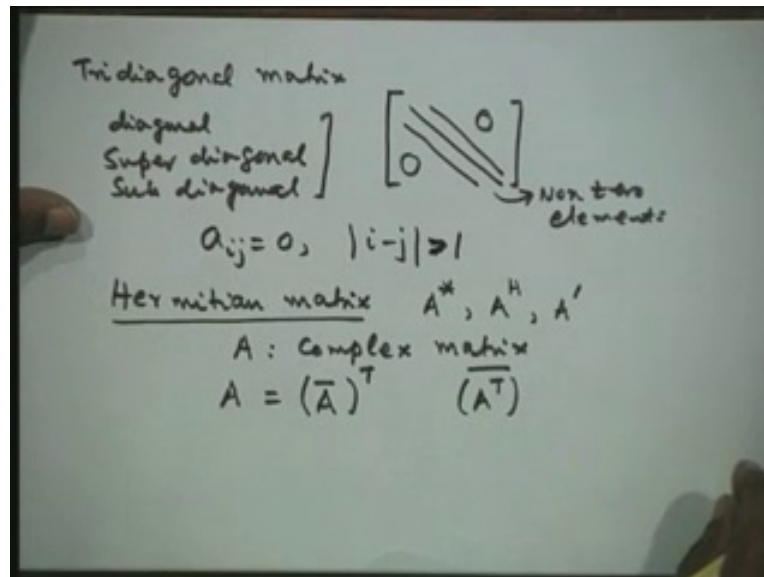 Tridiagonal matrix
diagonal
Super diagonal
Sub diagonal
[ 0 0 ]
Non zero
elements
a_{ij} = 0, |i-j| > 1
Hermitian matrix A^*, A^H, A'
A : Complex matrix
A = (\overline{A})^T (\overline{A^T})